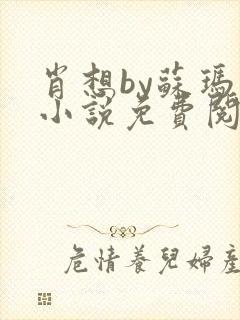 肖想by蘇瑪
小說免費閱
危情養兒婦產